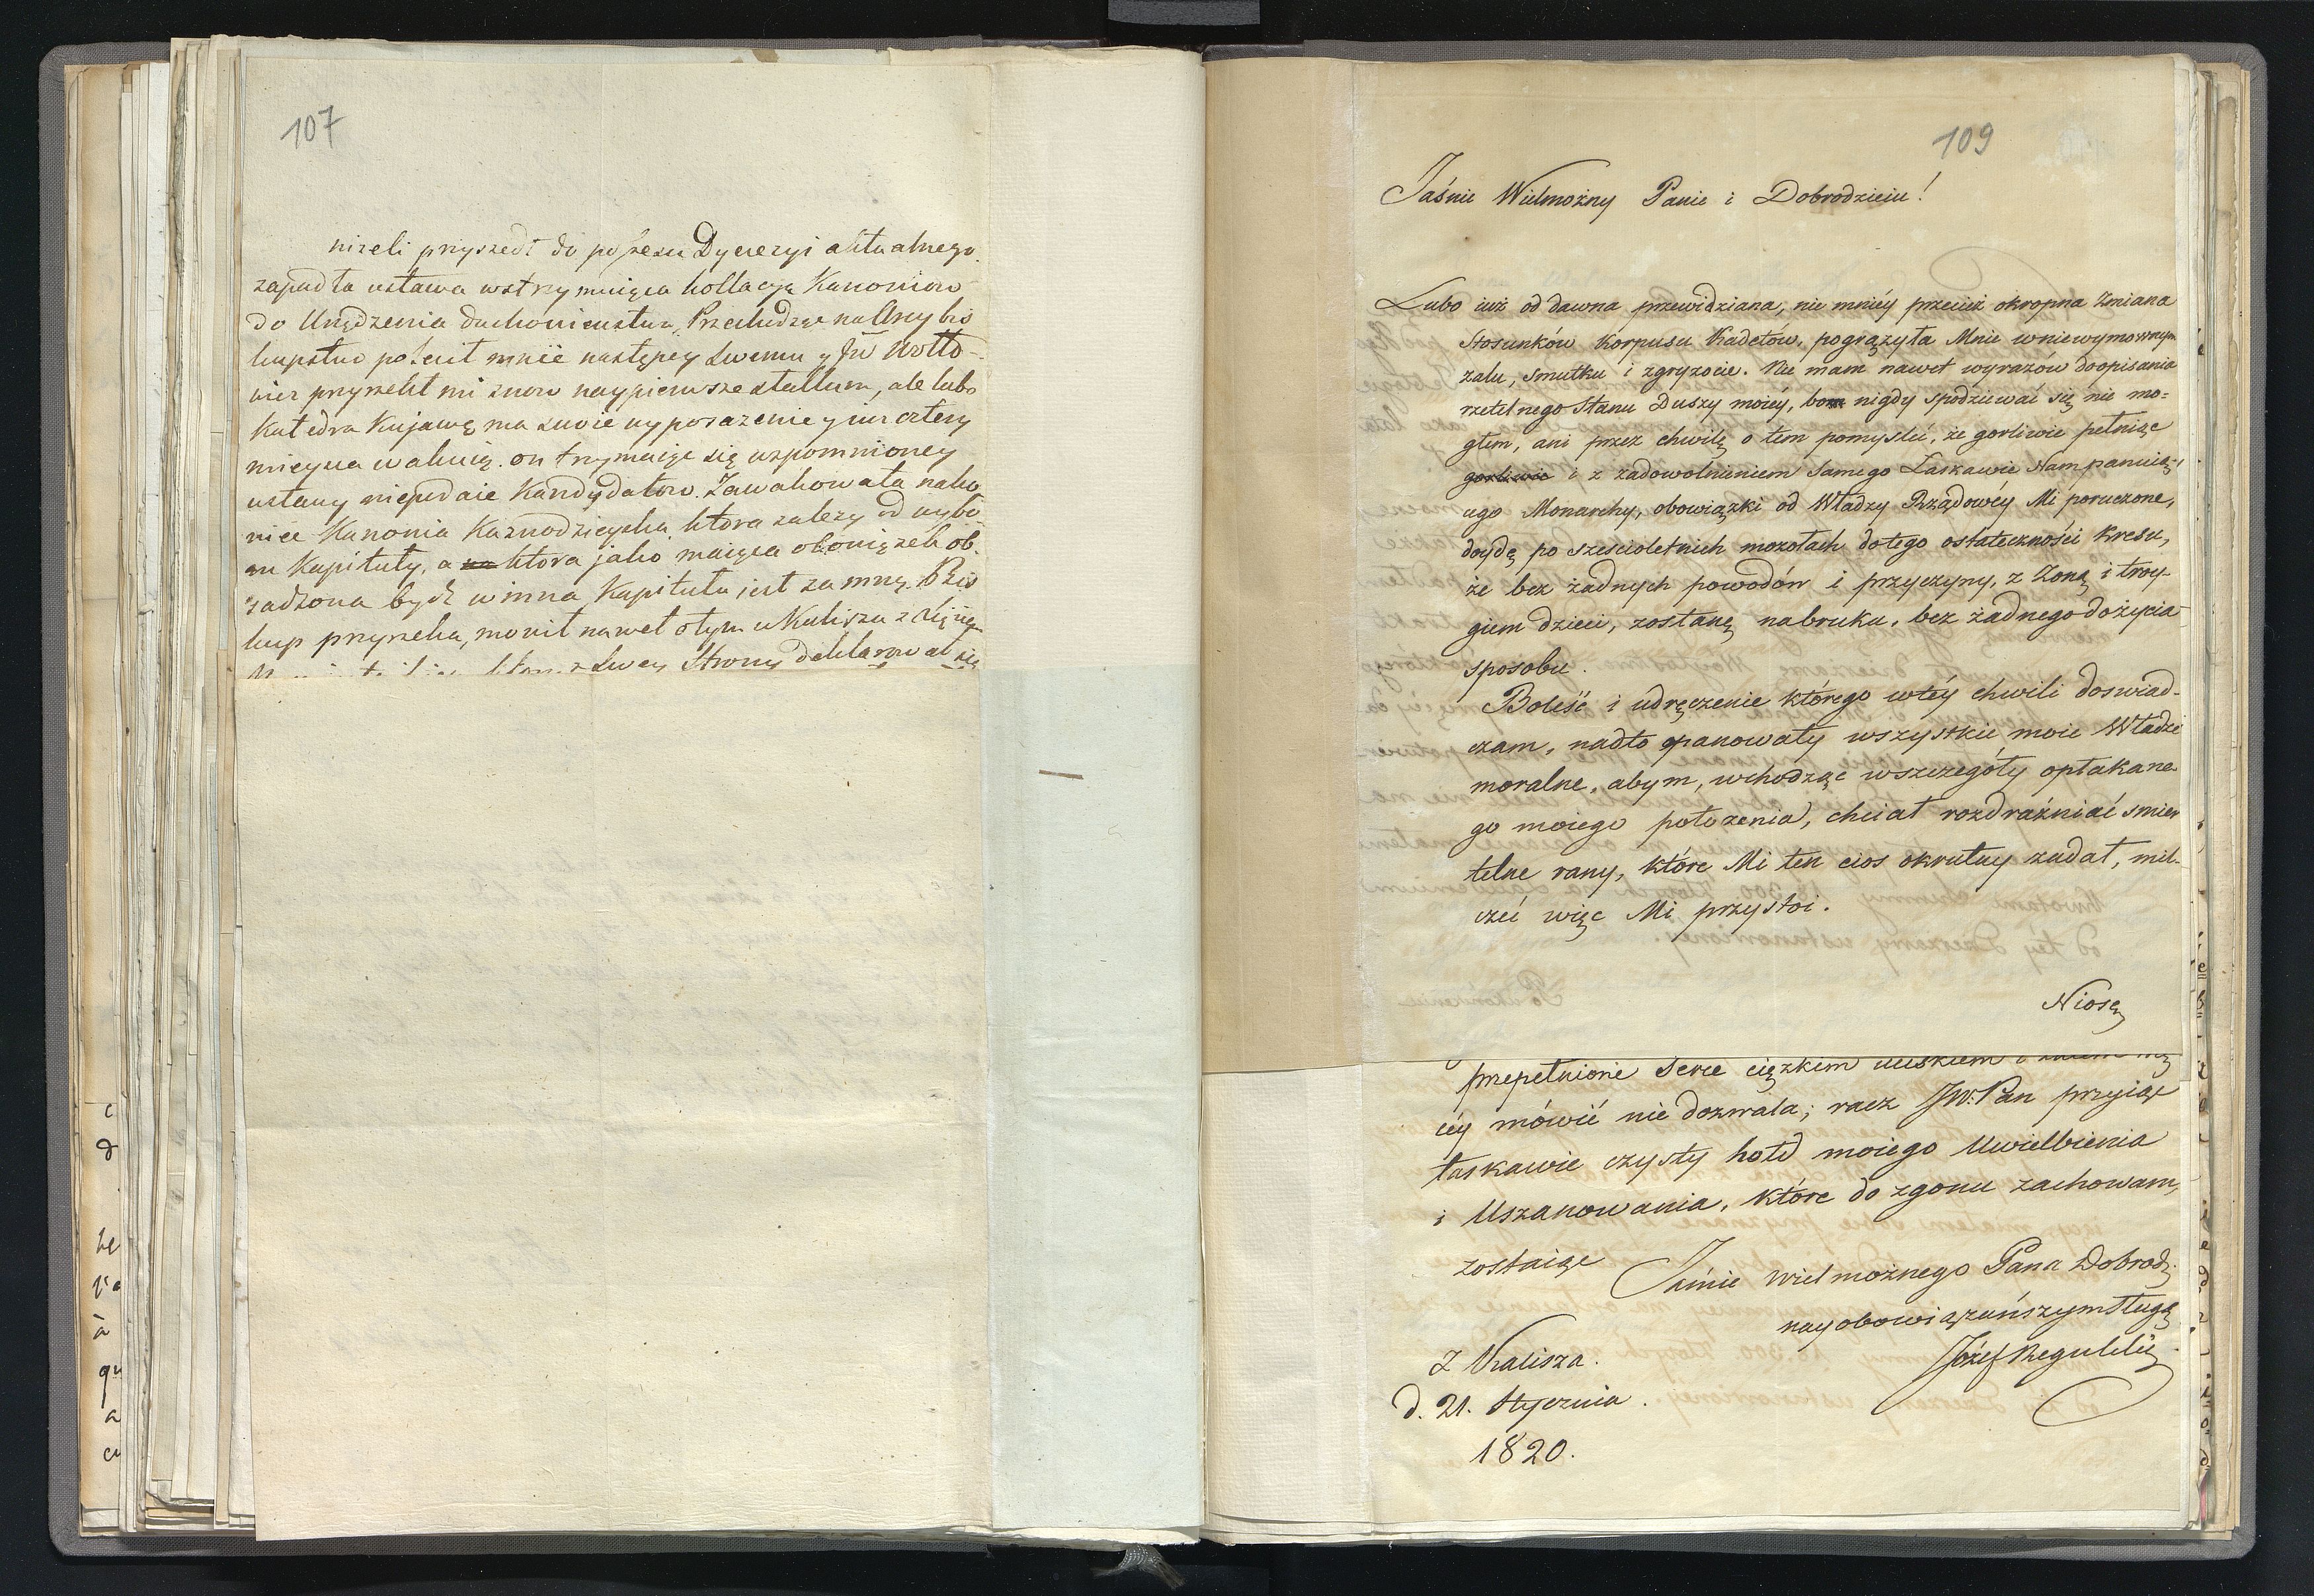 107
niżeli przyszedł do possessu Dyecezyi aktualnego
zapadła ustawa wstrzymuiąca kollacyą Kanoniow
do Urządzenia duchowieństwa, Przechodząc na Arcybis
kupstwo polecił mnie następcy swemu y JW Wołło-
wicz przyrzekł mi znow naypierwsze stallum, ale lubo
Katedra Kujawę ma swoie wyposażenie y iuż cztery
mieysca wakuią. on trzymaiąc się wspomnioney
ustawy niepodaie Kandydatow. Zawakowała nako
niec Kanonia Kaznodzieyska, ktora zależy od wybo
ru Kapituły, a na ktora jako maiąca obowiązek ob.
sadzona bydź winna Kapituła jest za mną. Bis
kup przyrzeka, mowił nawet o tym w Kaliszu z Xięciem
swey Strony deklarował się
109
Jaśnie Wielmożny Panie i Dobrodzieiu!
Lubo iuż od dawna przewidziana, nie mniéy przecież okropna Zmiana
Stosunków Korpusu Kadetów, pogrążyła Mnie w niewymownym
żalu, smutku i zgryzocie. Nie mam nawet wyrazów do opisania
rzetelnego Stanu Duszy moiéy, bom nigdy spodziewać się nie mo=
głem, ani przez chwilę o tem pomysleć, że gorliwie pełniąc
gorliwie i z zadowolnieniem Samego Łaskawie Nam panuią-
cego Monarchy, obowiązki od Władzy Rządowéy Mi poruczone,
doydę po sześcioletnich mozołach do tego ostateczności Kresu,
że bez żadnych powodów i przyczyny, z Zoną i troy-
giem dzieci, zostanę na bruku, bez żadnego do życia
sposobu.
Boleść i udręczenie którego w téy chwili doswiad-
czam, nadto opanowały wszystkie moie Władze
moralne, abym, wchodząc w szczegóły opłakane
go moiego położenia, chciał rozdraźniać smier
telne rany, które Mi ten cios okrutny zadał, mil-
czeć więc Mi przystoi.
Niosę
przepełnione Serce cięzkim uciskiem i
céy mówić nie dozwala; racz JW: Pan przyiąć
łaskawie czysty hołd moiego Uwielbienia
i Uszanowania, które do zgonu zachowam,
zostaiąc Jaśnie Wielmożnego Pana Dobrodz.
nayobowiązańszym Sługą
Z Kalisza.
Józef Regulski
d. 21. Stycznia.
1820.